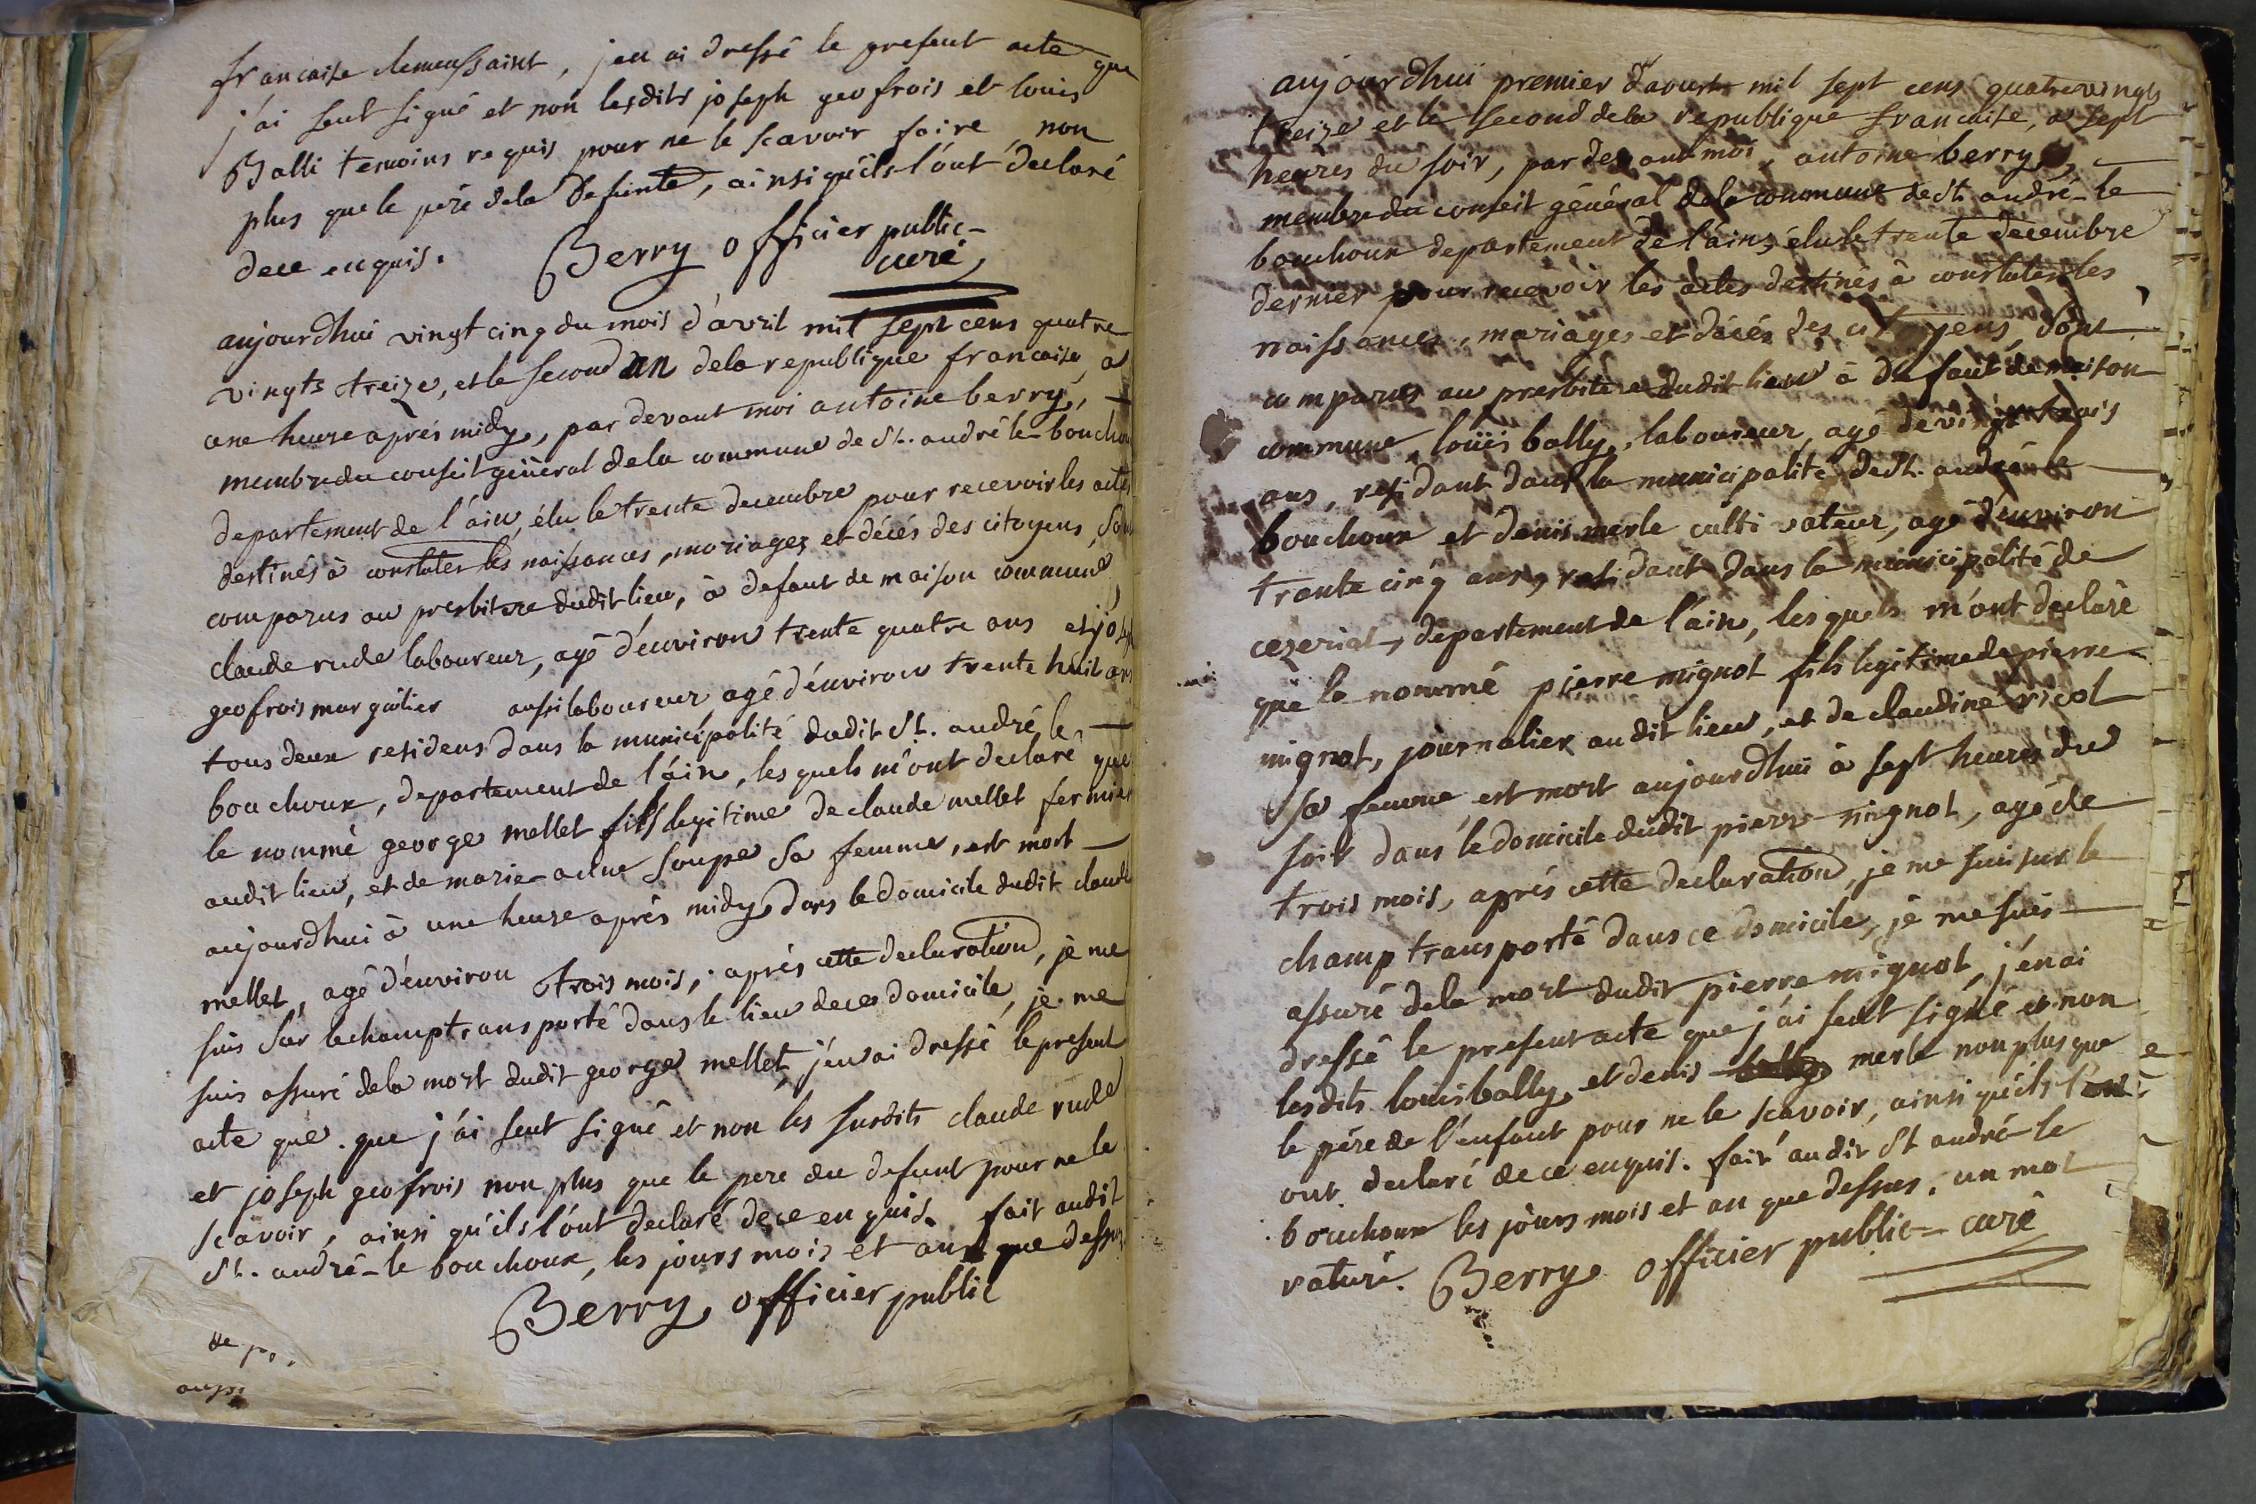 francaise demeussaint, j'en ai dressé le present acte que
j'ai seul signé et non lesdits joseph geofrois et louis
Balli temoins requis pour ne le scavoir faire non
plus que le pere dela defunte, ainsi qu'ils l'ont declaré
de ce enquis. Berry officier public-
curé
aujourdhui vingt cinq du mois d'avril mil sept cens quatre
vingts treize, et le second an dela republique francaise, a
une heure aprés midy, par devant moi antoine berry,
membre du conseil géneral dela commune de st. andré le-bouchou
departement de l'ain, élu le trente decembre pour recevoir les actes
destinés à constater les naissances, mariages et décés des citoyens, sont
comparus au presbitere dudit lieu, à defaut de maison commune,
claude rude laboureur, agé d'environ trente quatre ans et joseph
geofrois marguilier aussi laboureur agé d'environ trente huit ans
tous deux residens dans la municipalité dudit st. andré le
bouchoux, departement de l'ain, les quels m'ont declaré que
le nommé george mellet fils legitime de claude mellet fermier
audit lieu, et de marie soupe sa femme, est mort
aujourdhui à une heure aprés midy dans le domicile dudit claude
mellet, agé d'environ trois mois, aprés cette declaration, je me
suis sur le champ transporté dans le lieu de ces domicile, je me
suis assuré dela mort dudit george mellet, j'en ai dressé le present
acte que. que j'ai seul signé et non les susdits claude rude
et joseph geofrois non plus que le pere du defunt pour ne le
scavoir, ainsi qu'ils l'ont declaré de ce enquis. fait audit
st. andré-le bouchoux, les jours mois et an que dessus
Berry officier public
aujourdhui premier d'aoust mil sept cens quatrevingts
treize et le second dela republique francaise, a sept
heures du soir, par devant moi, antoine berry
membre du conseil général dela commune de st. andré-le
bouchoux departement de l'ain, élu le trente decembre
dernier pour recevoir les actes destinés à constater les
naissances, mariages et décés des citoyens, sont
comparus au presbitere dudit lieu à defaut de maison
commune, loüis bally, laboureur, agé de vingt trois
ans, residant dans la municipalité de st. andré le
bouchoux et denis merle cultivateur, agé d'environ
trente cinq ans, residant dans la municipalité de
cezeriat, departement de l'ain, lesquels m'ont declaré
que le nommé pierre mignot fils legitime de pierre
mignot, journalier audit lieu, et de claudine ricol
sa femme, est mort aujourdhui à sept heures du
soir dans le domicile dudit pierre mignot, agé de
trois mois, aprés cette declaration, je me suis sur le
champ transporté dans ce domicile, je me suis
assuré dela mort dudit pierre mignot, j'en ai
dressé le present acte que j'ai seul signé et non
lesdits louis bally et denis merle non plus que
le pére de l'enfant pour ne le scavoir, ainsi qu'ils l'
ont declaré de ce enquis. fait audit st andré-le
bouchoux les jours mois et an que dessus. un mot
raturé. Berry officier public-curé